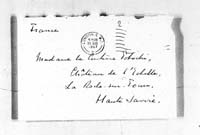 France
2
1947
Madame la Comtesse
Château de l'Echelle,
La Roche-sur-Foron,
Haute Savoie.